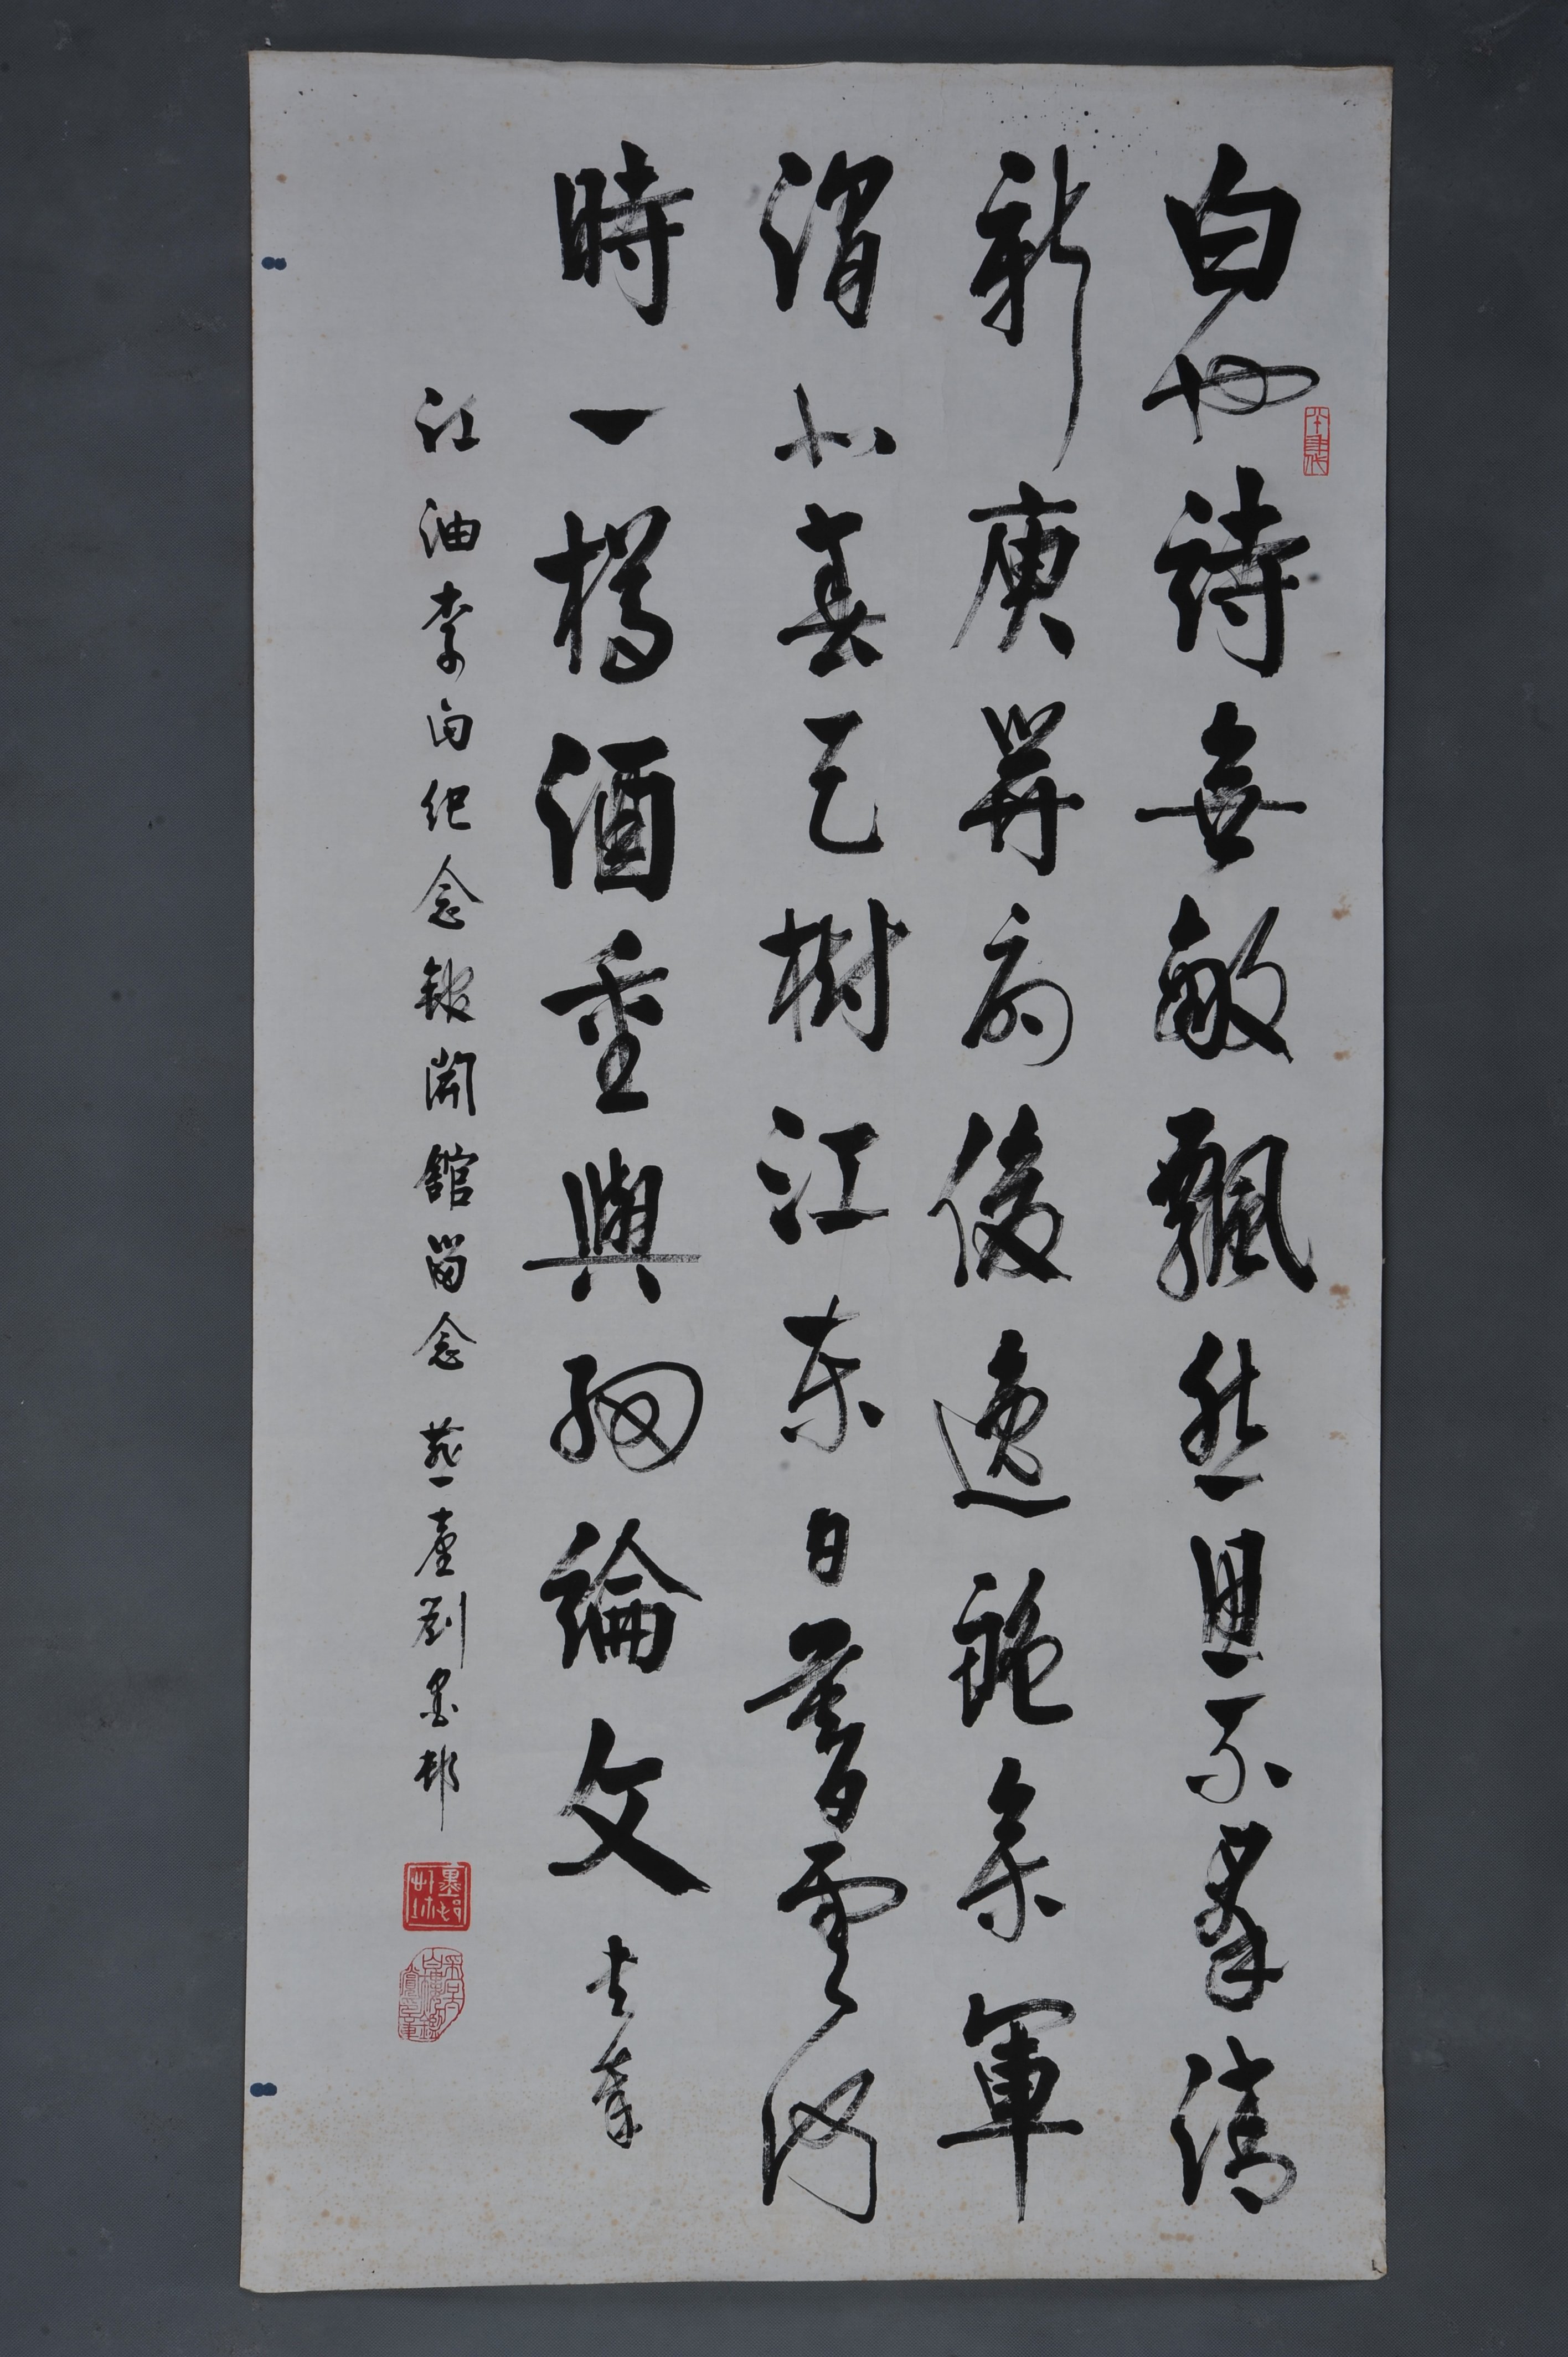 白也詩無敵飄然思不羣清
新庾開府俊逸鮑參軍
渭北春天樹江東日暮雲何
時一樽酒重與細論文 書奉
江油李白紀念館開館留念 燕臺劉墨邨